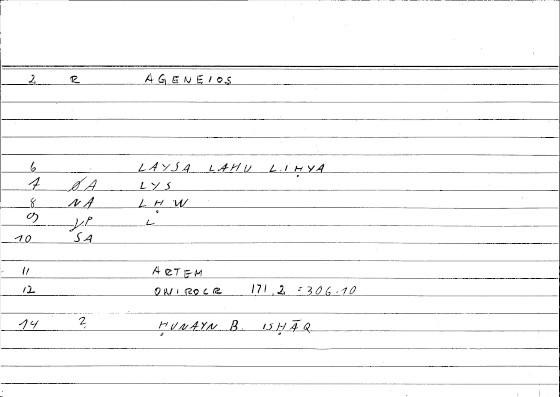 2 R AGENEIOS
6 LAYSA LAHU LIḤYA
7 ØA LYS
8 NA LḤW
9 VP L
10 SA
11 ARTEM
12 ONIROCR 171,2 = 306.10
14 2 ḤUNAYN B. ISḤĀQ